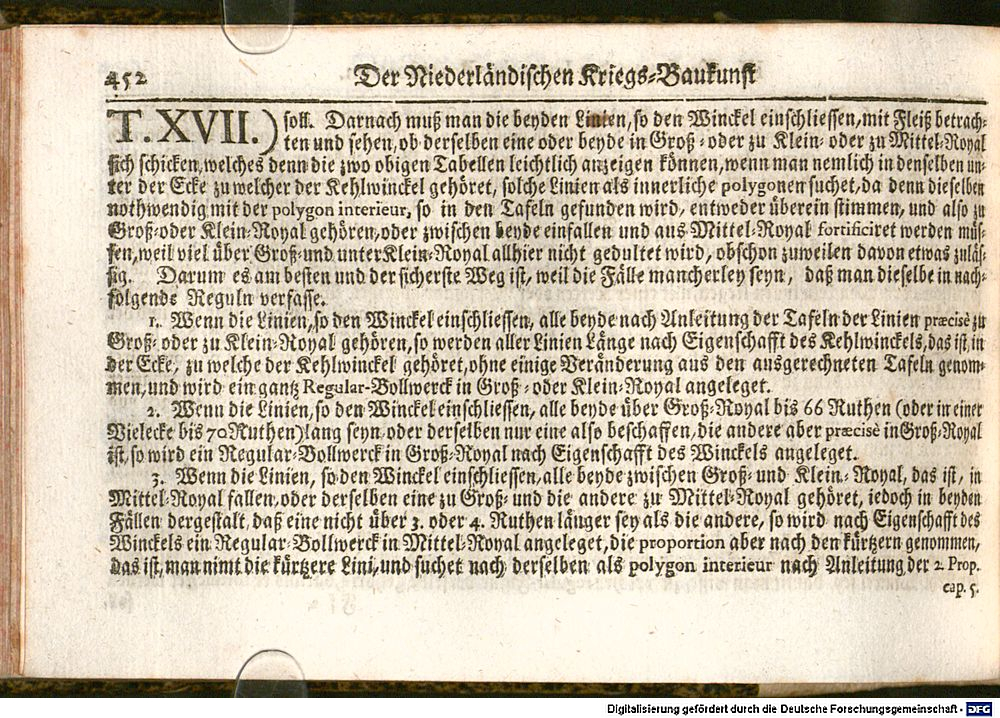 452
Der Niederländischen Kriegs-Baukunst
T. XVII.) soll. Darnach muß man die beyden Linien, so den Winckel einschliessen, mit Fleiß betrach-
ten und sehen, ob derselben eine oder beyde in Groß- oder zu Klein- oder zu Mittel-Royal
sich schicken, welches denn die zwo obigen Tabellen leichtlich anzeigen können, wenn man nemlich in denselben un-
ter der Ecke zu welcher der Kehlwinckel gehöret, solche Linien als innerliche polygonen suchet, da denn dieselben
nothwendig mit der polygon interieur, so in den Tafeln gefunden wird, entweder überein stimmen, und also zu
Groß- oder Klein-Royal gehören, oder zwischen beyde einfallen und aus Mittel-Royal fortificiret werden müs-
sen, weil viel über Groß- und unter Klein-Royal allhier nicht gedultet wird, obschon zuweilen davon etwas zuläs-
sig. Darum es am besten und der sicherste Weg ist, weil die Fälle mancherley seyn, daß man dieselbe in nach-
folgende Reguln verfasse.
1. Wenn die Linien, so den Winckel einschliessen, alle beyde nach Anleitung der Tafeln der Linien præcisè zu
Groß- oder zu Klein-Royal gehören, so werden aller Linien Länge nach Eigenschafft des Kehlwinckels, das ist, in
der Ecke, zu welche der Kehlwinckel gehöret, ohne einige Veränderung aus den ausgerechneten Tafeln genom-
men, und wird ein gantz Regular-Bollwerck in Groß- oder Klein-Royal angeleget.
2. Wenn die Linien, so den Winckel einschliessen, alle beyde über Groß-Royal bis 66 Ruthen (oder in einer
Vielecke bis 70 Ruthen) lang seyn, oder derselben nur eine also beschaffen, die andere aber præcisè in Groß-Royal
ist, so wird ein Regular-Bollwerck in Groß-Royal nach Eigenschafft des Winckels angeleget.
3. Wenn die Linien, so den Winckel einschliessen, alle beyde zwischen Groß- und Klein-Royal, das ist, in
Mittel-Royal fallen, oder derselben eine zu Groß- und die andere zu Mittel-Royal gehöret, iedoch in beyden
Fällen dergestalt, daß eine nicht über 3. oder 4. Ruthen länger sey als die andere, so wird nach Eigenschafft des
Winckels ein Regular-Bollwerck in Mittel-Royal angeleget, die proportion aber nach den kürtzern genommen,
das ist, man nimt die kürtzere Lini, und suchet nach derselben als polygon interieur nach Anleitung der 2. Prop.
cap. 5.
Digitalisierung gefördert durch die Deutsche Forschungsgemeinschaft - DFG